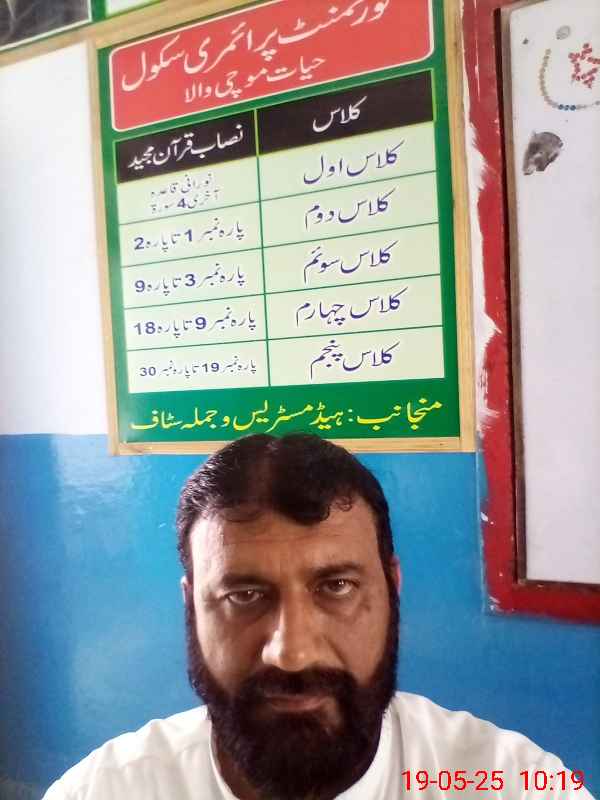 گورنمنٹ پرائمری سکول
حیات موچی والا
کلاس نصاب قرآن مجید
کلاس اول نورانی قاعدہ آخری 4 سورۃ
کلاس دوم پارہ نمبر 1 تا پارہ 2
کلاس سوئم پارہ نمبر 3 تا پارہ 9
کلاس چہارم پارہ نمبر 9 تا پارہ 18
کلاس پنجم پارہ نمبر 19 تا پارہ نمبر 30
منجانب: ہیڈ مسٹریس و جملہ سٹاف
19-05-25 10:19